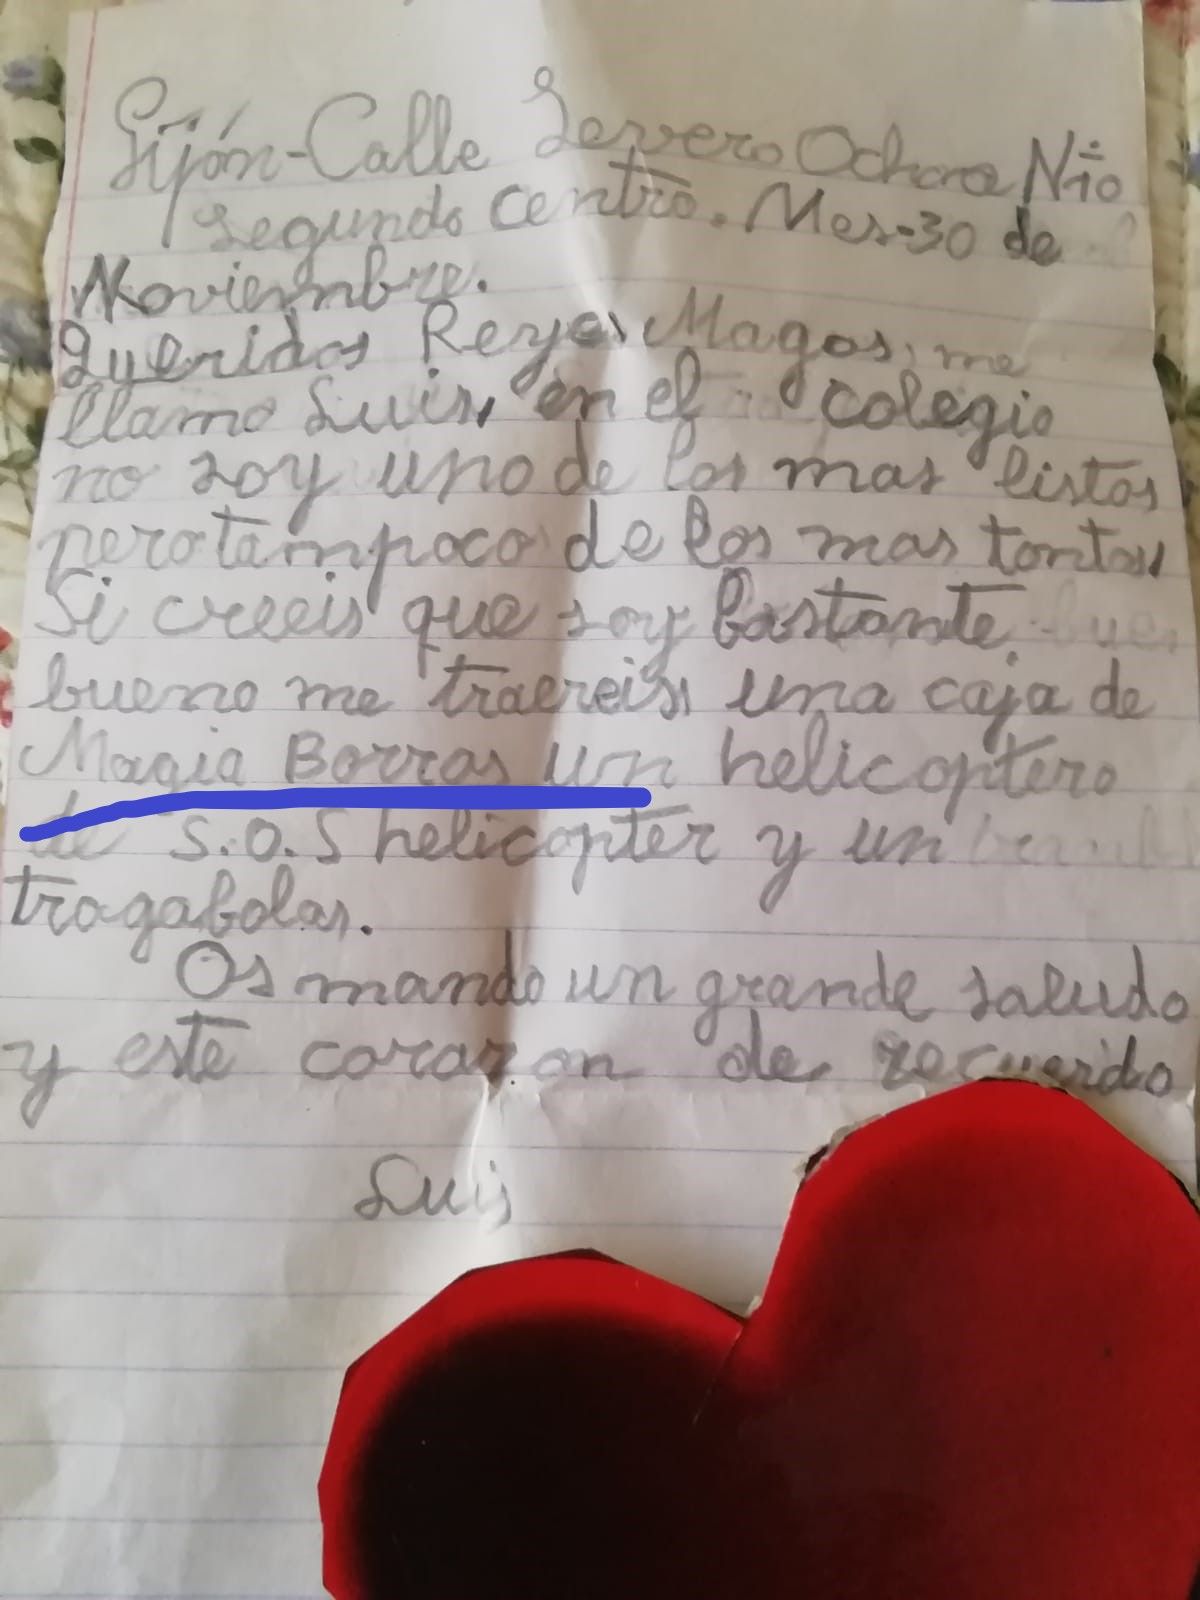 Gijón-Calle Severo Ochoa Nº10
segundo centro. Mes-30 de
Noviembre.
Queridos Reyes Magos, me
llamo Luis, en el colegio
no soy uno de los mas listos
pero tampoco de los mas tontos,
Si creeis que soy bastante,
bueno me traereis, una caja de
Magia Borras un helicoptero
de S.O.S helicopter y un
tragabolas.
Os mando un grande saludo
y este corazon de recuerdo
Luis